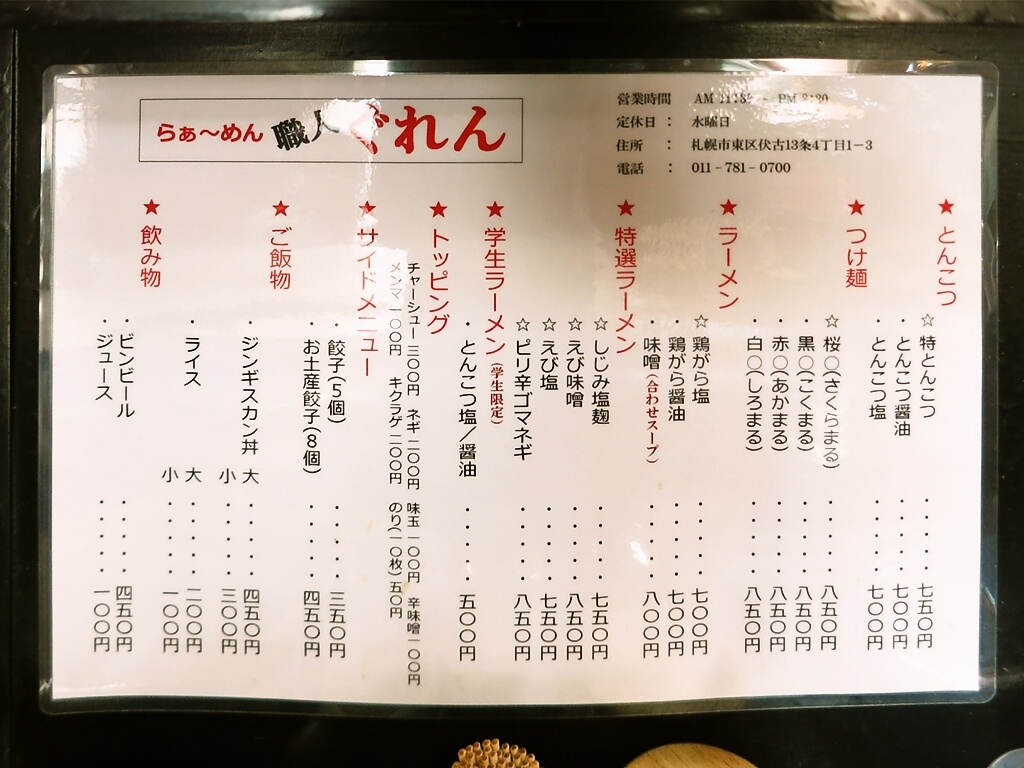 らぁ〜めん 職人 ぐれん
営業時間 AM
定休日 ： 水曜日
住所 ： 札幌市東区伏古13条4丁目1−3
電話 ： 011−781−0700
★とんこつ
☆特とんこつ ・・・・・七五〇円
・とんこつ醤油 ・・・・・七〇〇円
・とんこつ塩 ・・・・・七〇〇円
★つけ麺
☆桜〇(さくらまる) ・・・・・八五〇円
・黒〇(こくまる) ・・・・・八五〇円
・赤〇(あかまる) ・・・・・八五〇円
・白〇(しろまる) ・・・・・八五〇円
★ラーメン
☆鶏がら塩 ・・・・・七〇〇円
・鶏がら醤油 ・・・・・七〇〇円
・味噌(合わせスープ) ・・・・・八〇〇円
★特選ラーメン
☆しじみ塩麹 ・・・・・七五〇円
☆えび味噌 ・・・・・八五〇円
☆えび塩 ・・・・・七五〇円
☆ピリ辛ゴマネギ ・・・・・八五〇円
★学生ラーメン(学生限定)
・とんこつ塩／醤油 ・・・・・五〇〇円
★トッピング
チャーシュー 三〇〇円 ネギ 二〇〇円 味玉 一〇〇円 辛味噌 一〇〇円
メンマ 一〇〇円 キクラゲ 二〇〇円 のり(一〇枚) 五〇円
★サイドメニュー
・餃子(5個) ・・・・・三五〇円
・お土産餃子(8個) ・・・・・四五〇円
★ご飯物
・ジンギスカン丼 大 ・・・・・四五〇円
小 ・・・・・三〇〇円
・ライス 大 ・・・・・二〇〇円
小 ・・・・・一〇〇円
★飲み物
・ビンビール ・・・・・四五〇円
・ジュース ・・・・・一〇〇円